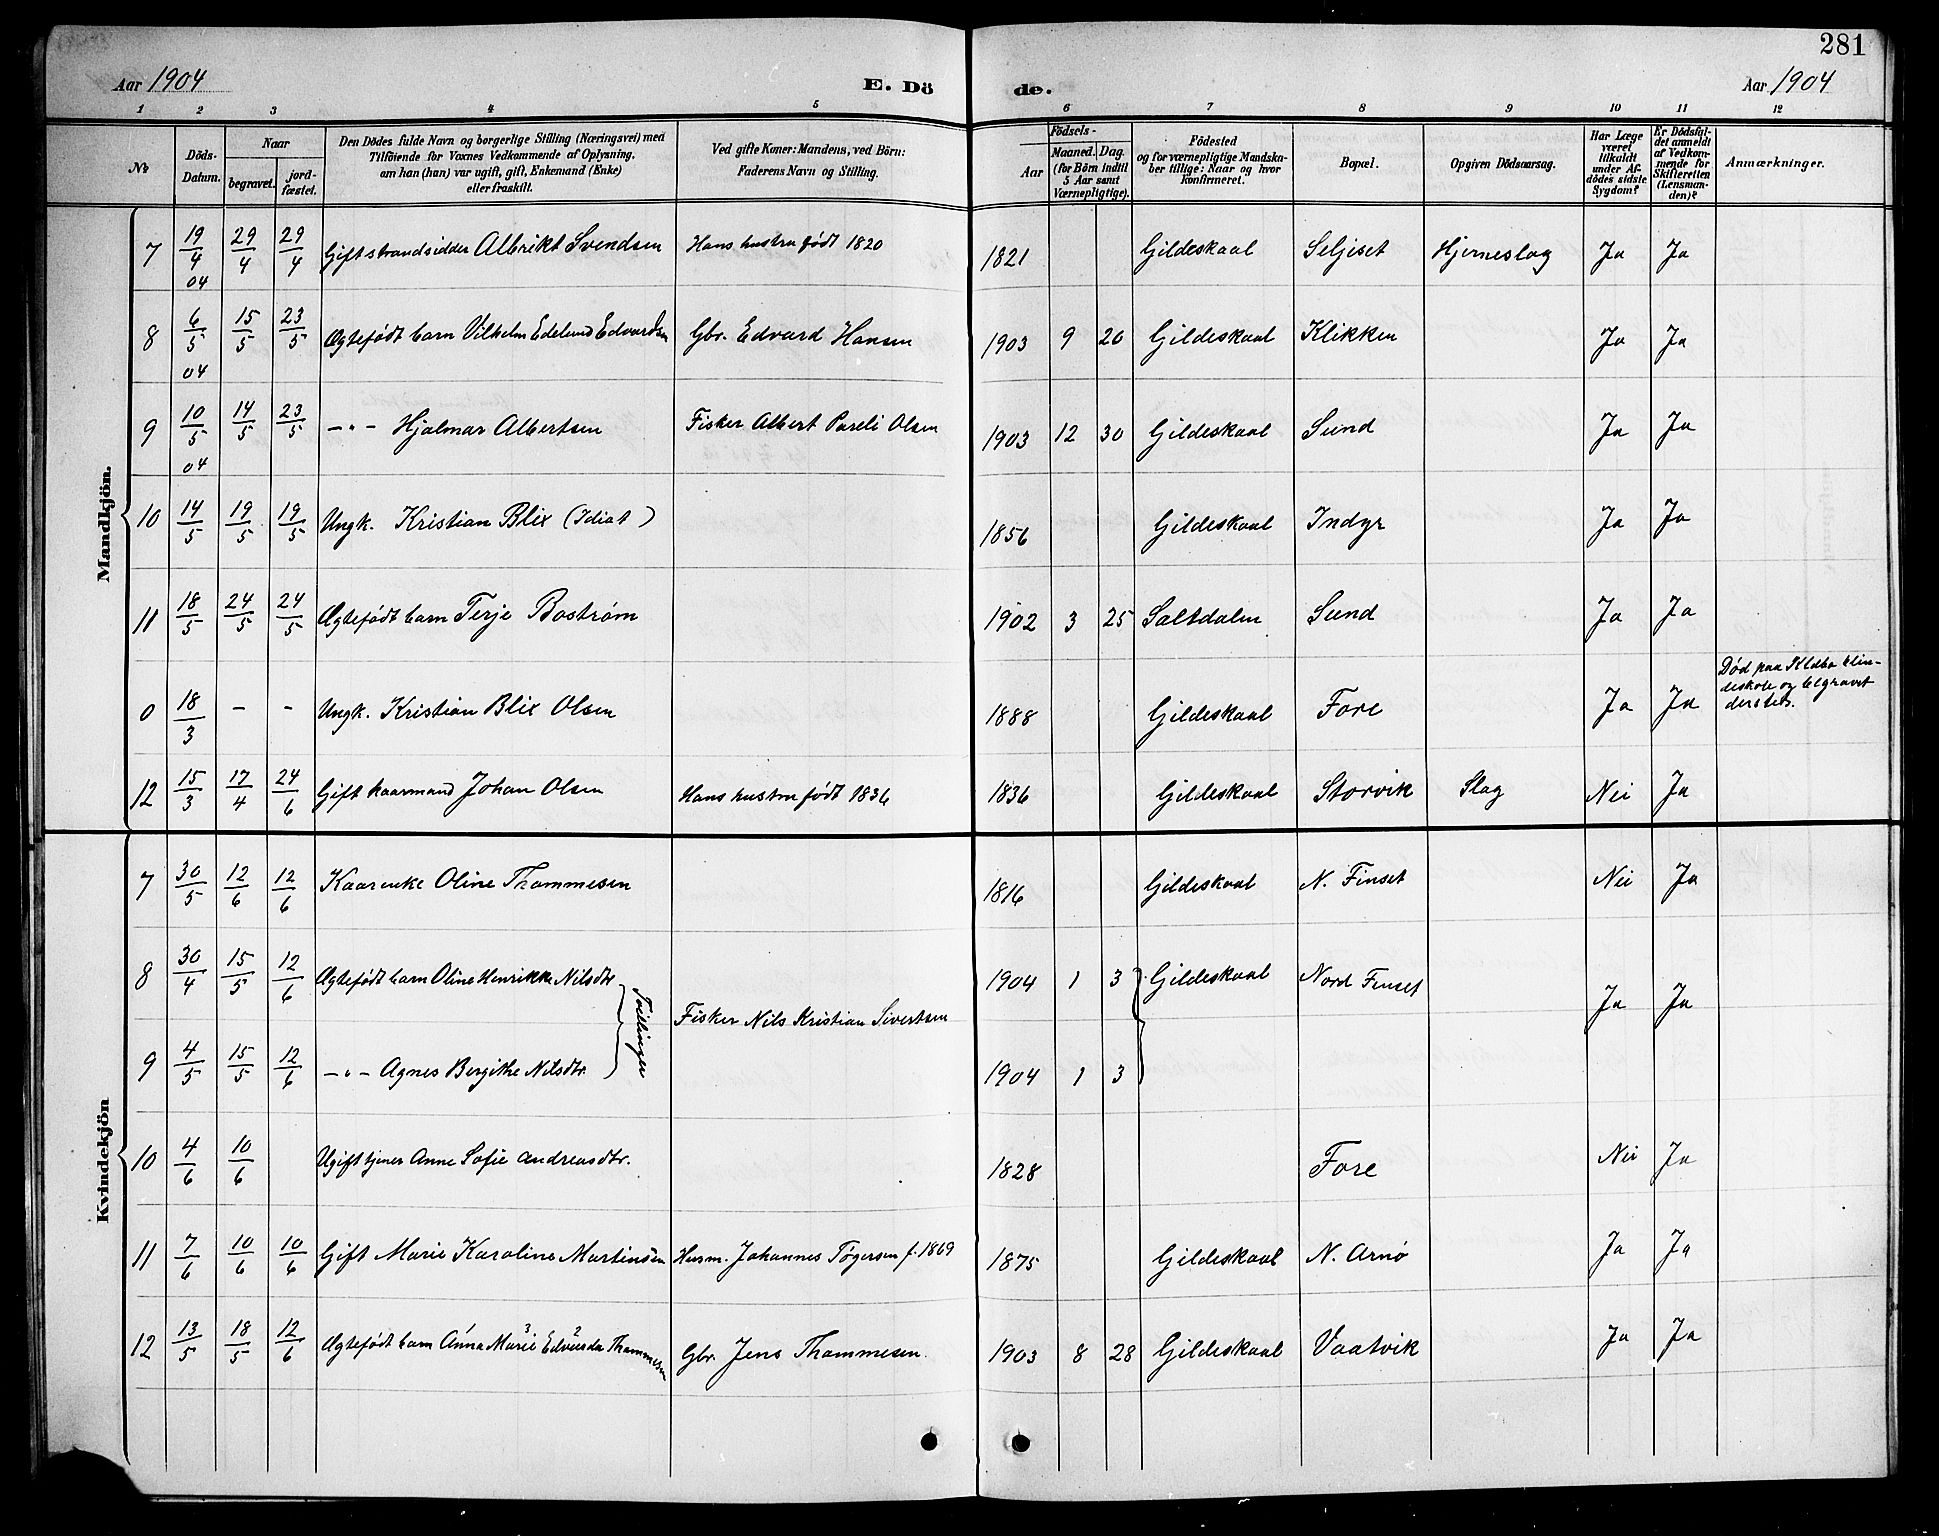 281
Aar 1904 E. Dö de. Aar 1904
1 2 3 4 5 6 7 8 9 10 11 12
№ Döds-Datum. Naar begravet. jordfæstet. Den Dödes fulde Navn og borgerlige Stilling (Næringsvei) med Tilföiende for Voxnes Vedkommende af Oplysning, om han (hun) var ugift, gift, Enkemand (Enke) eller fraskilt. Ved gifte Koner: Mandens, ved Börn: Faderens Navn og Stilling. Födsels- Aar Maaned. Dag. (for Börn indtil 5 Aar samt Værnepligtige). Födested og for værnepligtige Mandskaber tillige: Naar og hvor konfirmeret. Bopæl. Opgiven Dödsaarsag. Har Læge været tilkaldt under Afdödes sidste Sygdom? Er Dödsfaldet anmeldt af Vedkommende for Skifteretten (Lensmanden)? Anmærkninger.
Mandkjön.
7 19/4 04 29/4 29/4 Gift strandsidder Albrikt Svendsen Hans hustru født 1820 1821 Gildeskaal Seljeset Hjerneslag Ja Ja
8 6/5 04 15/5 23/5 Ægtefødt barn Vilhelm Edelund Edvardsen Gbr. Edvard Hansen 1903 9 26 Gildeskaal Klikken Ja Ja
9 10/5 04 14/5 23/5 -"- Hjalmar Albertsen Fisker Albert Pareli Olsen 1903 12 30 Gildeskaal Sund Ja Ja
10 14/5 19/5 19/5 Ungk. Kristian Blix (Idiot) 1856 Gildeskaal Indyr Ja Ja
11 18/5 24/5 24/5 Ægtefødt barn Terje Bostrøm 1902 3 25 Saltdalen Sund Ja Ja
0 18/3 - - Ungk. Kristian Blix Olsen 1888 Gildeskaal Fore Ja Ja Død paa Klæbo blindeskole og begravet dersteds.
12 15/3 17/4 24/6 Gift kaarmand Johan Olsen Hans hustru født 1836 1836 Gildeskaal Storvik Slag Nei Ja
Kvindekjön
7 30/5 12/6 12/6 Kaarenke Oline Thommesen 1816 Gildeskaal N. Finset Nei Ja
8 30/4 15/5 12/6 Ægtefødt barn Oline Henrikke Nilsdtr. Tvillinger Fisker Nils Kristian Sivertsen 1904 1 3 Gildeskaal Nord Finset Ja Ja
9 4/5 15/5 12/6 -"- Agnes Bergithe Nilsdtr. 1904 1 3
10 4/6 10/6 Ugift tjener Anne Sofie Andreasdtr. 1828 Fore Nei Ja
11 7/6 10/6 10/6 Gift Marie Karoline Martinsen Husm. Johannes Tøgersen f. 1869 1875 Gildeskaal N. Arnø Ja Ja
12 13/5 18/5 12/6 Ægtefødt barn Anna 1 Marie 3 Edvarda 2 Thommesen Gbr. Jens Thommesen. 1903 8 28 Gildeskaal Vaatvik Ja Ja